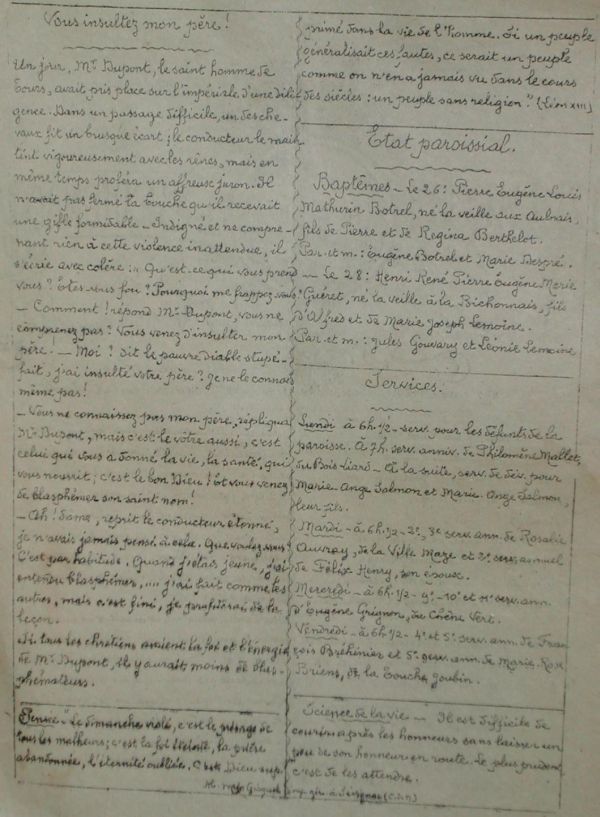 Vous insultez mon père !
Un jour, Mr Dupont, le saint homme de
Tours, avait pris place sur l'impériale d'une dili-
gence. Dans un passage difficile, un des che-
vaux fit un brusque écart ; le conducteur le main-
tint vigoureusement avec les rênes, mais en
même temps proféra un affreux juron. Il
n'avait pas fermé la bouche qu'il recevait
une gifle formidable - Indigné et ne compre-
nant rien à cette violence inattendue, il
s'écrie avec colère : « Qu'est-ce qui vous prend
vous ? Etes-vous fou ? Pourquoi me frappez-vous ?
- Comment ! répond Mr Dupont, vous ne
comprenez pas ? Vous venez d'insulter mon
père ! - Moi ? dit le pauvre diable stupé-
fait, j'ai insulté votre père ? je ne le connais
même pas !
- Vous ne connaissez pas mon père, répliqua
Mr Dupont, mais c'est le vôtre aussi, c'est
celui qui vous a donné la vie, la santé, qui
vous nourrit ; c'est le bon Dieu ! Et vous venez
de blasphémer son saint nom !
- Ah ! dame, reprit le conducteur étonné,
je n'avais jamais pensé à cela. Que voulez-vous ?
C'est par habitude. Quand j'étais jeune, j'ai
entendu blasphémer, ... j'ai fait comme les
autres, mais c'est fini, je profiterai de la
leçon.
Si tous les chrétiens avaient la foi et l'énergie
de Mr Dupont, il y aurait moins de blas-
phémateurs.
Pensée - Le dimanche violé, c'est le présage de
tous les malheurs ; c'est la foi éteinte, la prière
abandonnée, l'éternité oubliée. C'est Dieu sup-
primé dans la vie de l'homme. Si un peuple
généralisait ces fautes, ce serait un peuple
comme on n'en a jamais vu dans le cours
des siècles : un peuple sans religion." (Léon XIII)
Etat paroissial.
Baptêmes - Le 26 : Pierre Eugène Louis
Mathurin Botrel, né la veille aux Aulnais,
fils de Pierre et de Regina Berthelot.
Par. et m. : Eugène Botrel et Marie Despré.
- Le 28 : Henri René Pierre Eugène Marie
Guéret, né la veille à la Bichonnais, fils
d'Alfred et de Marie Joseph Lemoine.
Par. et m. : Jules Gouvary et Léonie Lemoine
Services.
Lundi à 6h. 1/2 - serv. pour les défunts de la
paroisse. à 7h. serv. anniv. de Philomène Mallot,
du Bois-Liard - A la suite, serv. de dév. pour
Marie-Ange Salmon et Marie-Ange Salmon,
leur fils.
Mardi - à 6h. 1/2 - 2e, 3e serv. ann. de Rosalie
Auvray, de la Ville Maze et 2e serv. annuel
de Félix Henry, son époux.
Mercredi - à 6h. 1/2 - 9e - 10e et 11e serv. ann.
d'Eugène Grignon, du Chêne Vert.
Vendredi - à 6h. 1/2 - 4e et 5e serv. ann. de Fran-
çois Bréhinier et 5e serv. ann. de Marie-Rose
Briens, de la Touche goubin.
Science de la vie - Il est difficile de
courir après les honneurs sans laisser un
peu de son honneur en route. Le plus prudent,
c'est de les attendre.